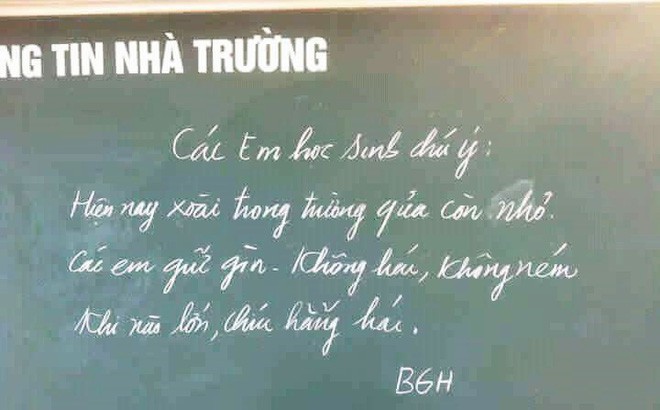 NG TIN NHÀ TRƯỜNG
Các Em học sinh chú ý:
Hiện nay xoài trong trường qủa còn nhỏ.
Các em giữ gìn - Không hái, Không ném
Khi nào lớn, chín hẵng hái.
BGH